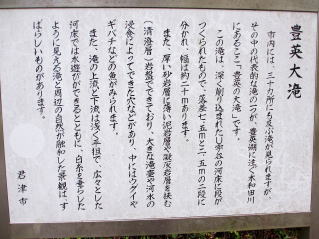 豊英大滝
市内には、三十カ所にも及ぶ滝が見られますが、
その中の代表的な滝の一つが、豊英湖に注ぐ本和田川
にあるここ、「豊英の大滝」です。
この滝は、深く削り込まれたU字谷の河床に段が
つくられたもので、落差七・五mと二・五mの二段に
分かれ、幅は約二十mあります。
また、厚い砂岩層に薄い泥岩層や凝灰岩層を挟む
(清澄層)岩盤でできており、大きな滝壷や河水の
浸食によってできた穴などがあり、中にはウグイや
ギバチなどの魚がみられます。
また、滝の上流と下流は浅く平坦で、広々とした
河床では水遊びができるとともに、白糸を垂らした
ように見える滝と周辺の自然が融和した景観は、す
ばらしいものがあります。
君津市